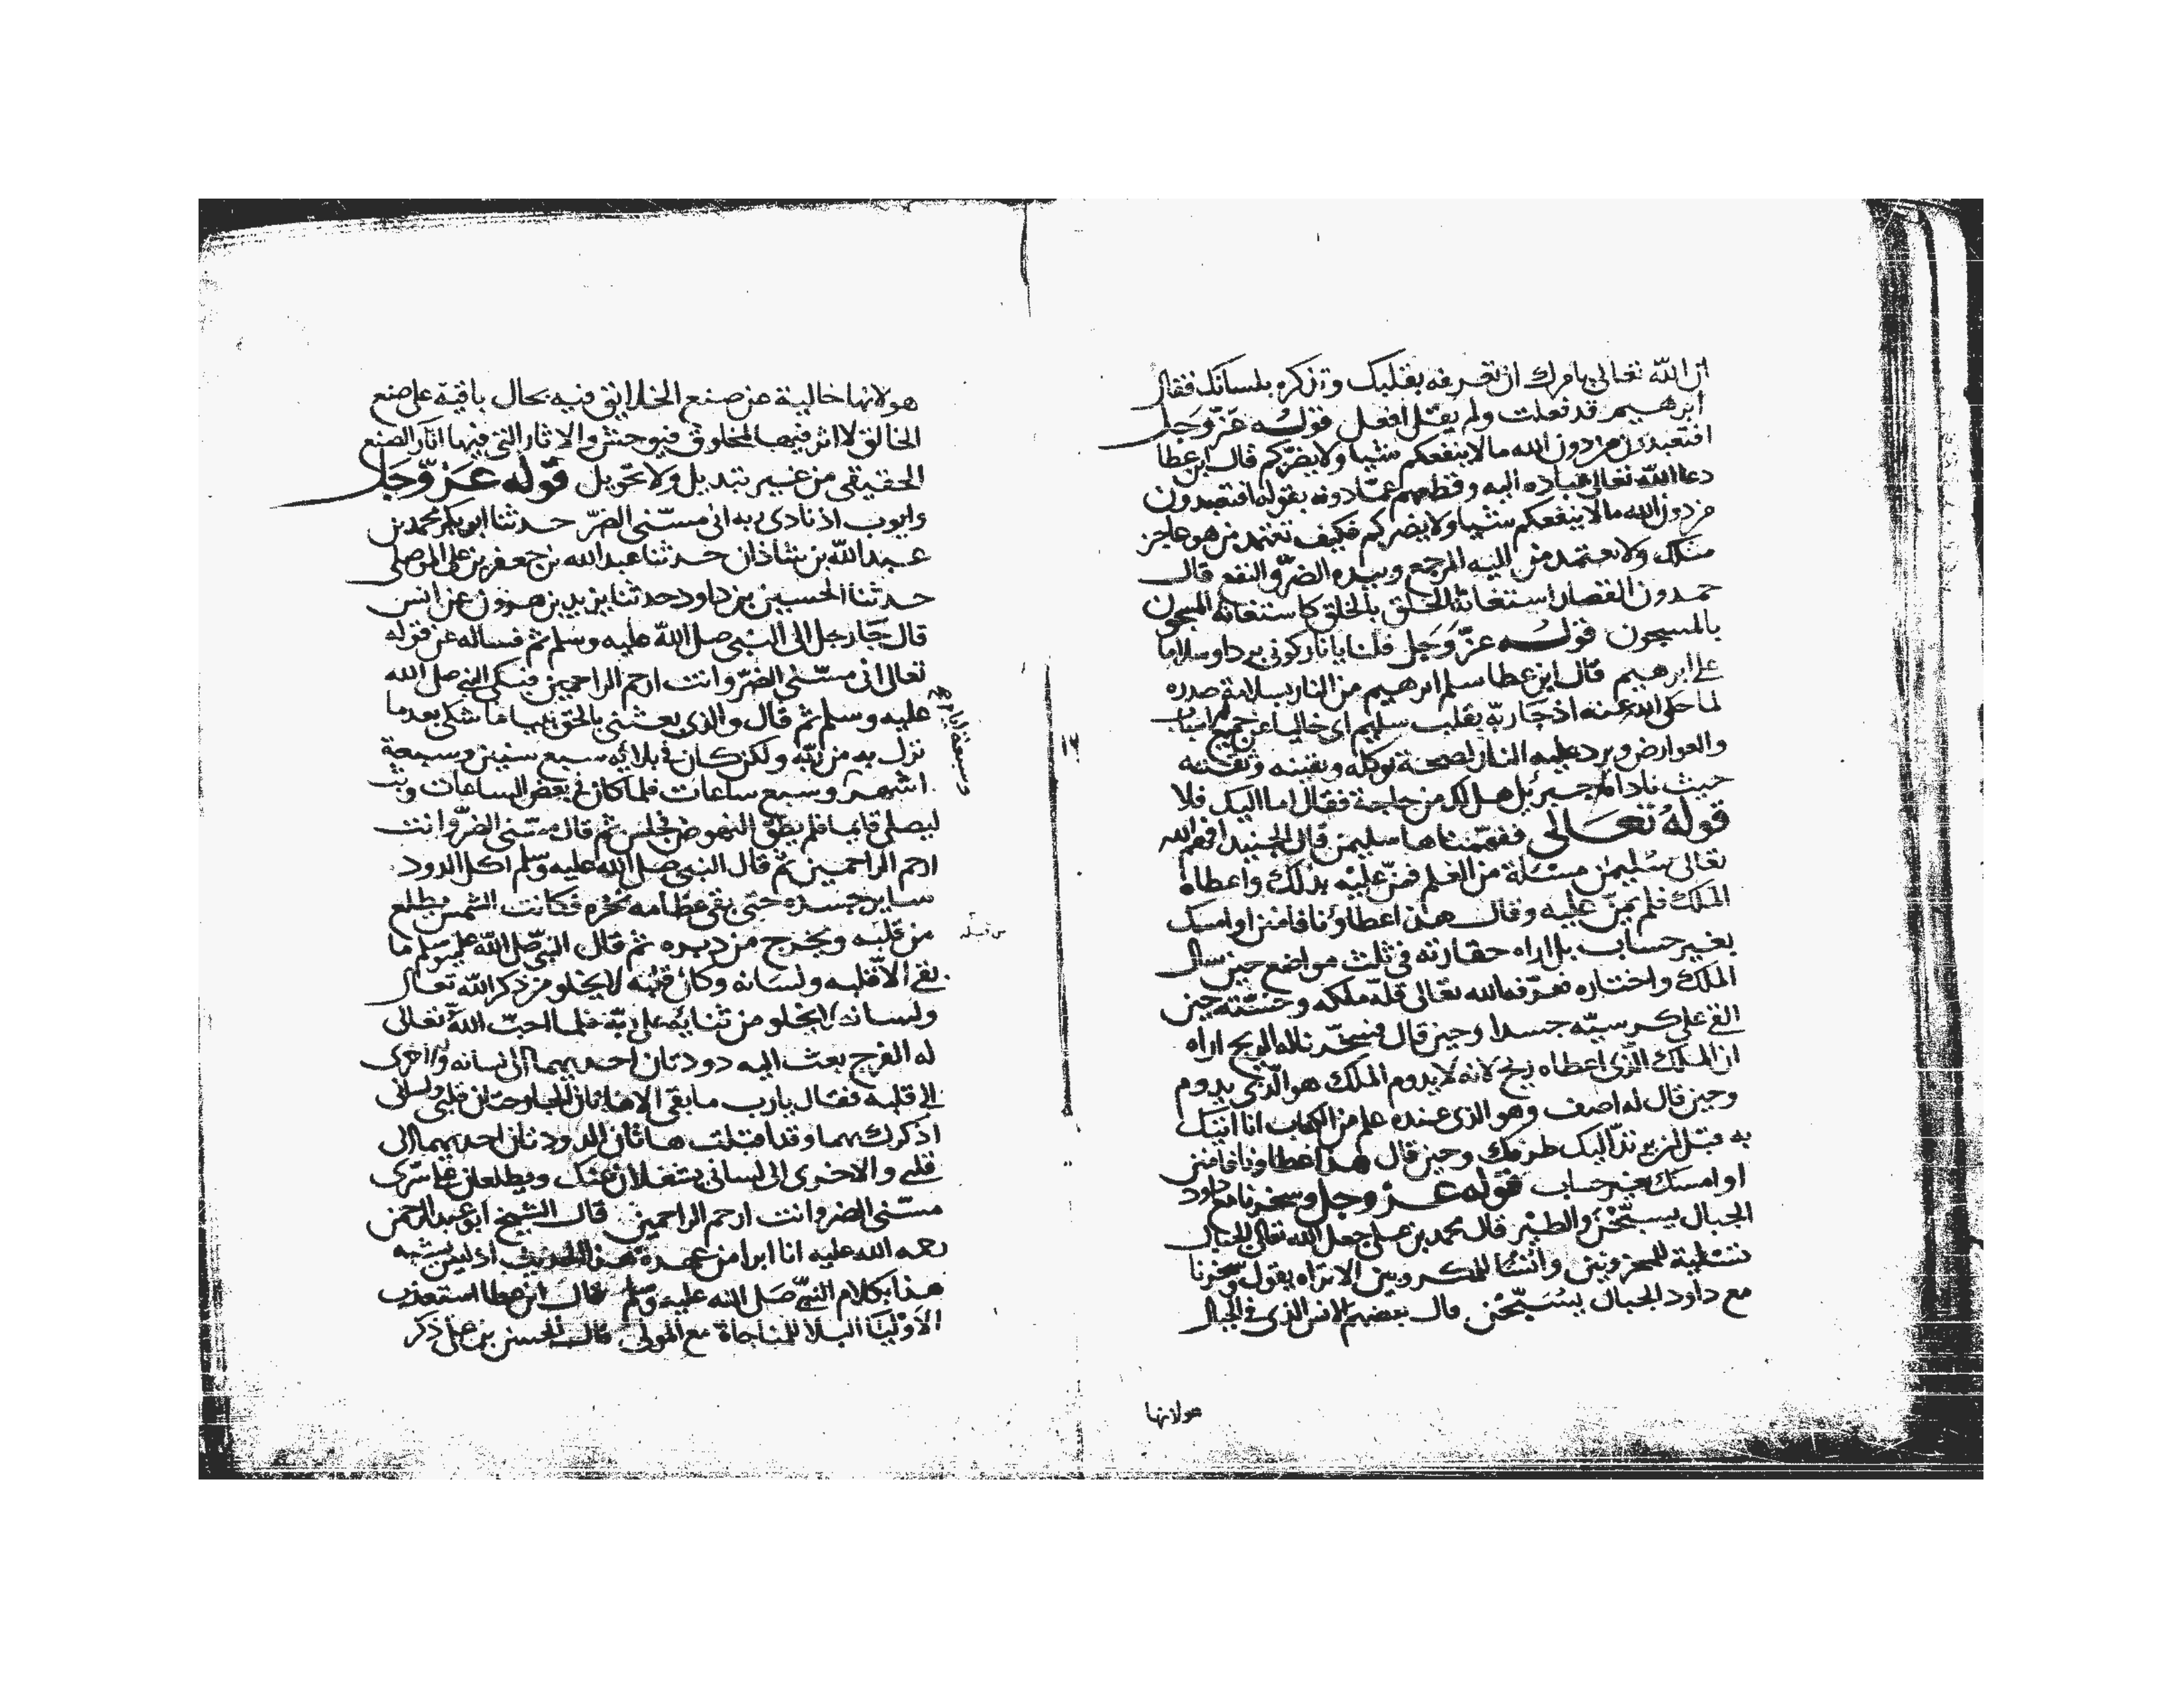 ان الله تعالى يامرك ان تعرفه بقلبك وتذكره بلسانك فقال
ابرهيم قد فعلت ولم يقل افعل قوله عز وجل
افتعبدون من دون الله ما لا ينفعكم شيا ولا يضركم قال ابن عطا
دعا الله تعالى عباده اليه وقطعهم عما دونه بقوله افتعبدون
من دون الله ما لا ينفعكم شيا ولا يضركم فكيف تعتمد من هو عاجز
منلك ولا تعتمد من اليه المرجع وبيده الضر والنفع قال
حمدون القصار استغاثة الخلق بالخلق كاستغاثة المسجون
بالمسجون قوله عز وجل قلنا يا نار كوني بردا وسلاما
على ابرهيم قال ابن عطا سلم ابرهيم من النار بسلامة صدره
لما حكى الله عنه اذ جا ربه بقلب سليم اى خاليا عن جميع اسباب
والعوارض وبرد عليه النار لصحة توكله ويقينه وثقته
حيث ناداه جبرئل هل لك من حاجة فقال اما اليك فلا
قوله تعالى ففهمناها سليمن قال الجنيد افهم الله
تعالى سليمن مسئلة من العلم فمن عليه بذلك واعطاه
الملك فلم يمن عليه وقال هذا عطاؤنا فامنن او امسك
بغير حساب بل اراه حقارته في ثلث مواضع حين سال
الملك واختاره فعرفه الله تعالى قلة ملكه وخسته حين
القى على كرسيه جسدا وحين قال فسخرنا له الريح اراه
ان الملك الذى اعطاه ريح لانه لا يدوم الملك هو الذى يدوم
وحين قال له اصف وهو الذى عنده علم من الكتاب انا اتيك
به قبل ان يرتد اليك طرفك وحين قال هذا عطاونا فامنن
او امسك بغير حساب قوله عز وجل وسخرنا مع داود
الجبال يسبحن والطير قال محمد بن على جعل الله تعالى الجبال
تسلية للمحزونين وانسا للمكروبين الا تراه يقول وسخرنا
مع داود الجبال يسبحن قال بعضهم الانس الذى في الجبال
هولانها
هو لانها خالية عن صنع الخلايق فيه بحال باقية على صنع
الخالق لا اثر فيها لمخلوق فيوحش والاثار التى فيها اثار الصنع
الحقيقى من غير تبديل ولا تحويل قوله عز وجل
وايوب اذ نادى ربه انى مسنى الضر حدثنا ابو بكر محمد بن
عبد الله بن شاذان حدثنا عبد الله بن جعفر بن على الموصلى
حدثنا الحسين بن داود حدثنا يزيد بن هرون عن انس
قال جا رجل الى النبى صلى الله عليه وسلم ثم فساله عن قوله
تعالى انى مسنى الضر وانت ارحم الراحمين فبكى النبى صلى الله
عليه وسلم ثم قال والذى بعثنى بالحق نبيا ما شكى بعد ما
نزل به من ربه ولكن كان في بلائه سبع سنين وسبعة
اشهر وسبع ساعات فلما كان في بعض الساعات وثب
ليصلى قايما فلم يطق النهوض فجلس ثم قال مسنى الضر وانت
ارحم الراحمين ثم قال النبى صلى الله عليه وسلم اكل الدود
ساير جسده حتى بقى عظامه نخرة فكانت الشمس تطلع
من قلبه ويخرج من دبره ثم قال النبى صلى الله عليه وسلم ما
بقى الا قلبه ولسانه وكان قلبه لا يخلو من ذكر الله تعالى
ولسانه لا يخلو من ثنايه على ربه فلما احب الله تعالى
له الفرج بعث اليه دودتان احديهما الى لسانه والاخرى
الى قلبه فقال يارب ما بقى الا هاتان الجارحتان قلبى ولسانى
اذكرك بهما وقد اقبلت هاتان الدودتان احديهما الى
قلبى والاخرى الى لسانى يشغلان عنك ويطلعان على سرى
مسنى الضر وانت ارحم الراحمين قال الشيخ ابو عبد الرحمن
رحمه الله عليه انا ابرا من عهدة هذا الحديث اذ ليس يشبه
هذا بكلام النبى صلى الله عليه وسلم قال ابن عطا استعذب
الاوليا البلا للمناجاة مع المولى قال الحسن بن على ذكر
وسبعة ايام